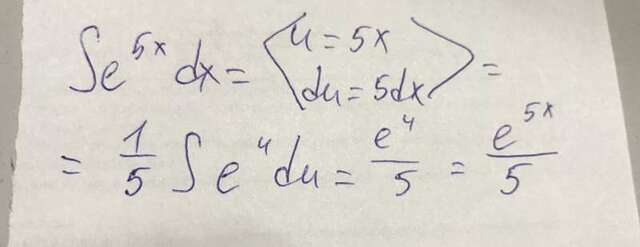 ∫e^{5x} dx = ⟨u = 5x
du = 5dx⟩ =
= 1/5 ∫ e^u du = e^u/5 = e^{5x}/5